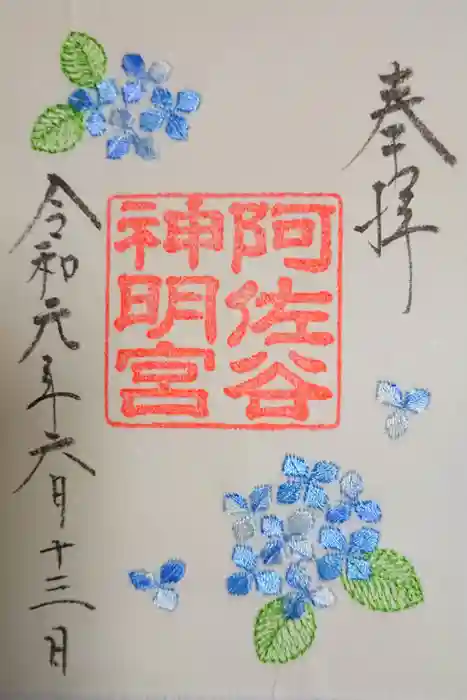 奉拝
阿佐谷
神明宮
令和元年六月十三日